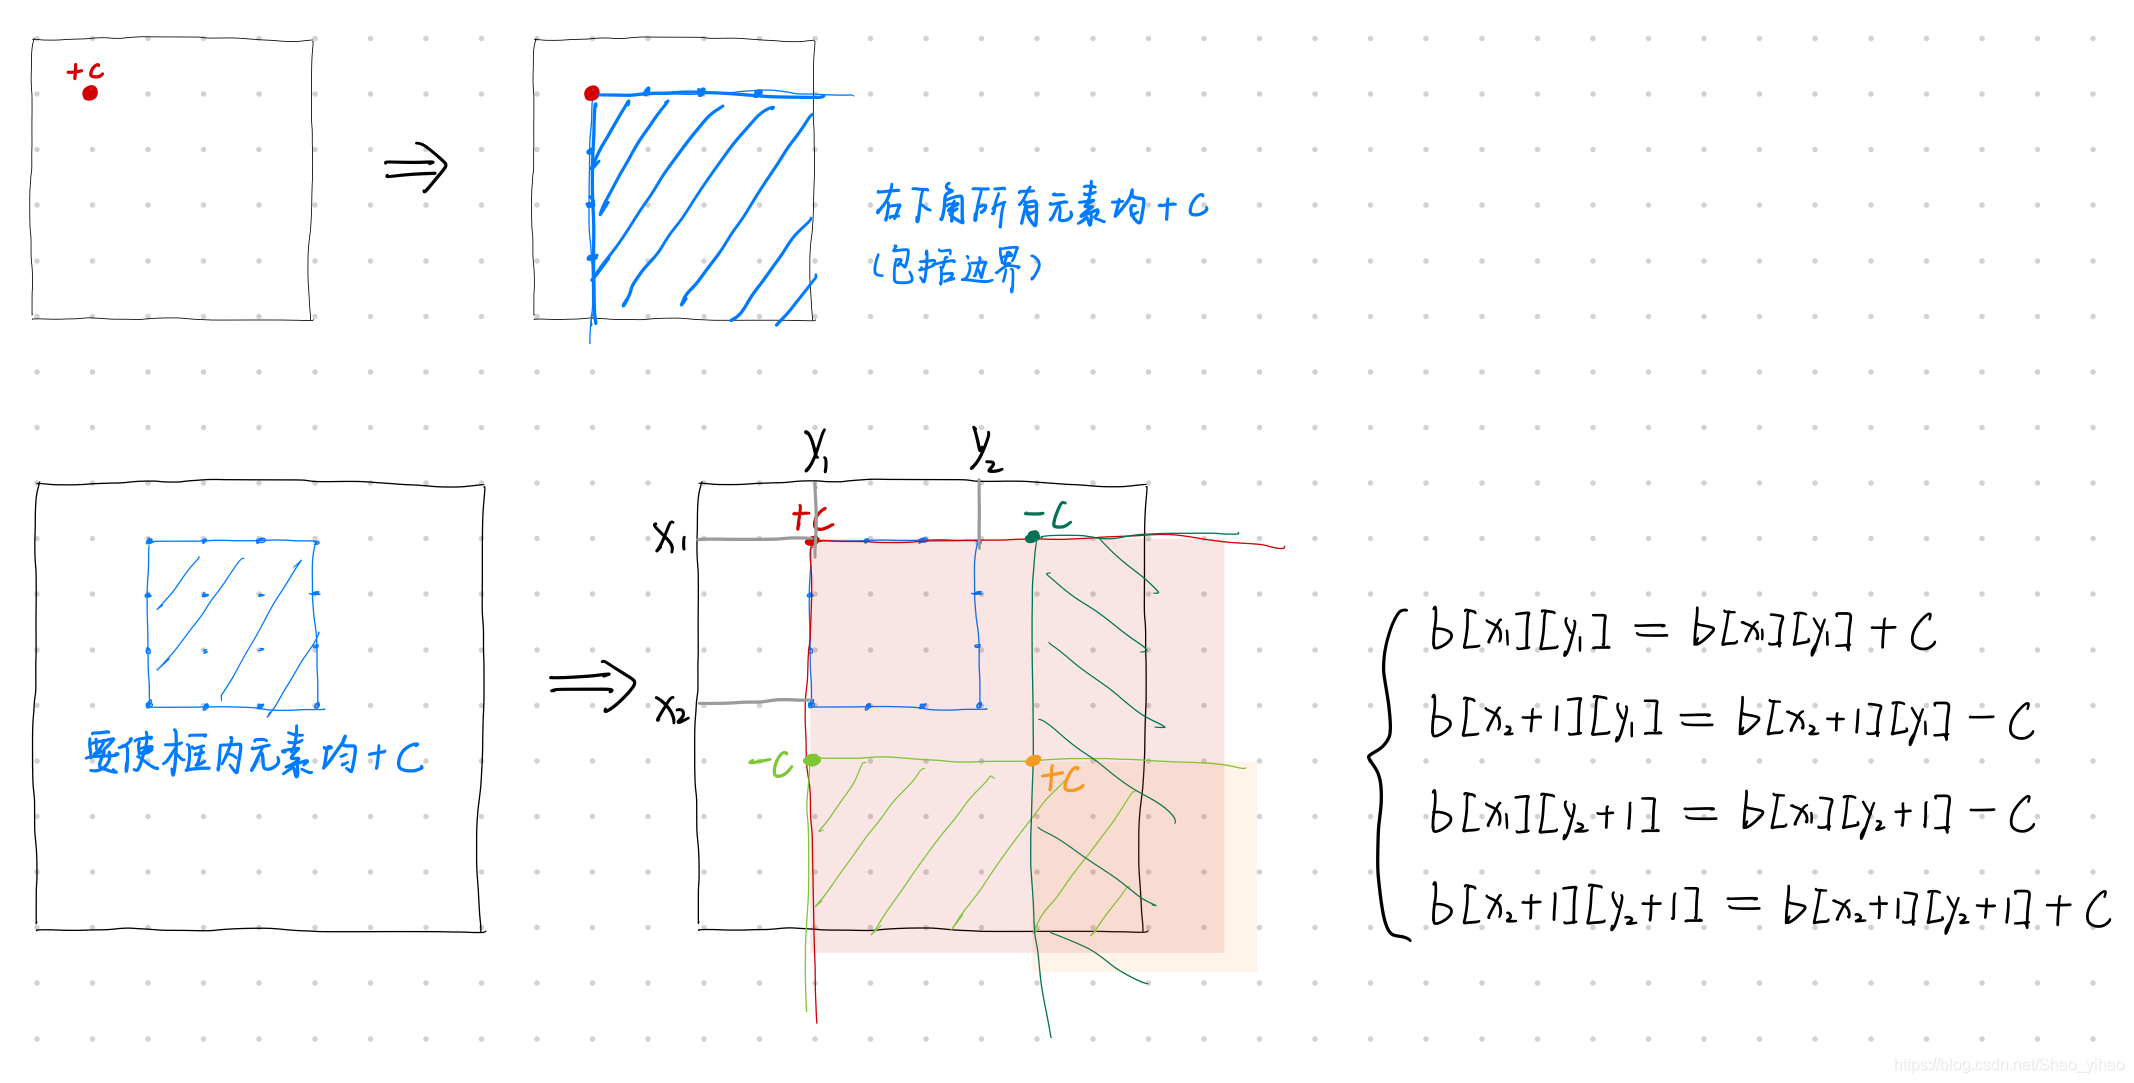 +c
右下角所有元素均+C
(包括边界)
y₁
y₂
+C
-C
x₁
x₂
-C
+C
要使框内元素均+C
b[x₁][y₁] = b[x₁][y₁] + C
b[x₂+1][y₁] = b[x₂+1][y₁] - C
b[x₁][y₂+1] = b[x₁][y₂+1] - C
b[x₂+1][y₂+1] = b[x₂+1][y₂+1] + C
https://blog.csdn.net/Shao_yihao